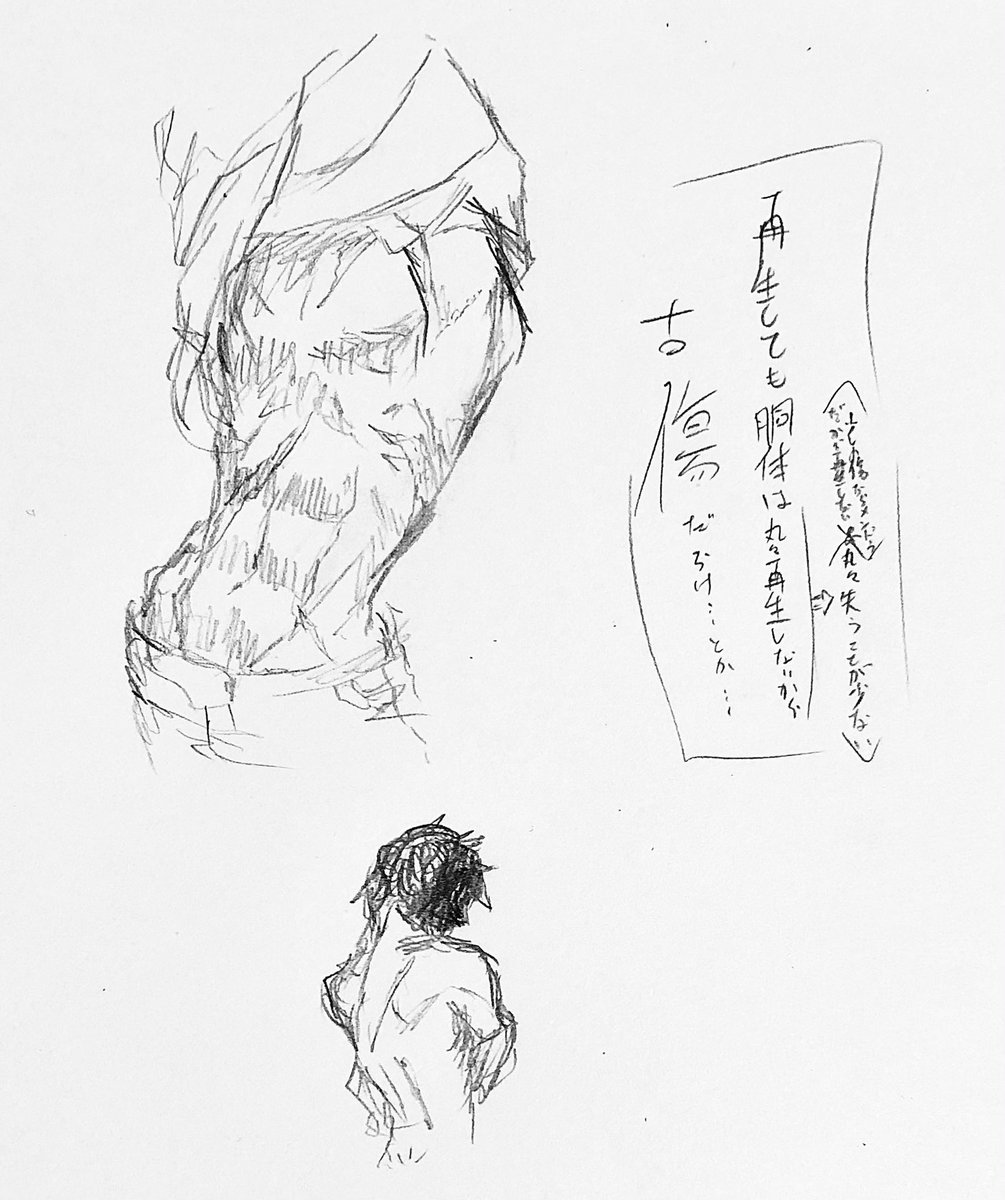 丸々失うことが少ない
再生しても胴体は丸々再生しないから
古傷だらけ…とか…